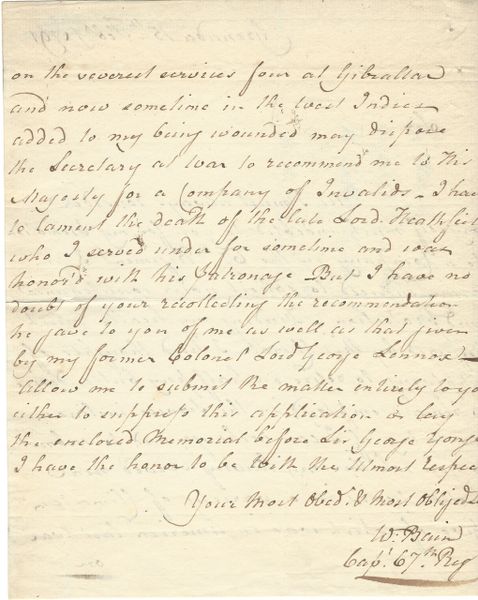 on the severest services four at Gibraltar
and now sometime in the West Indies
added to my being wounded may dispose
the Secretary at War to recommend me to His
Majesty for a Company of Invalids - I have
to lament the death of the late Lord Heathfiel
who I served under for sometime and was
honor'd with his Patronage But I have no
doubt of your recollecting the recommendation
he gave to you of me as well as that given
by my former Colonel Lord George Lennox
Allow me to submit the matter entirely to yo
either to suppress this application or lay
the enclosed Memorial before Sir George Yonge
I have the honor to be with the Utmost respec
Your Most Obed.t & Most Obliged
W. Bain
Cap.t 67.th Reg